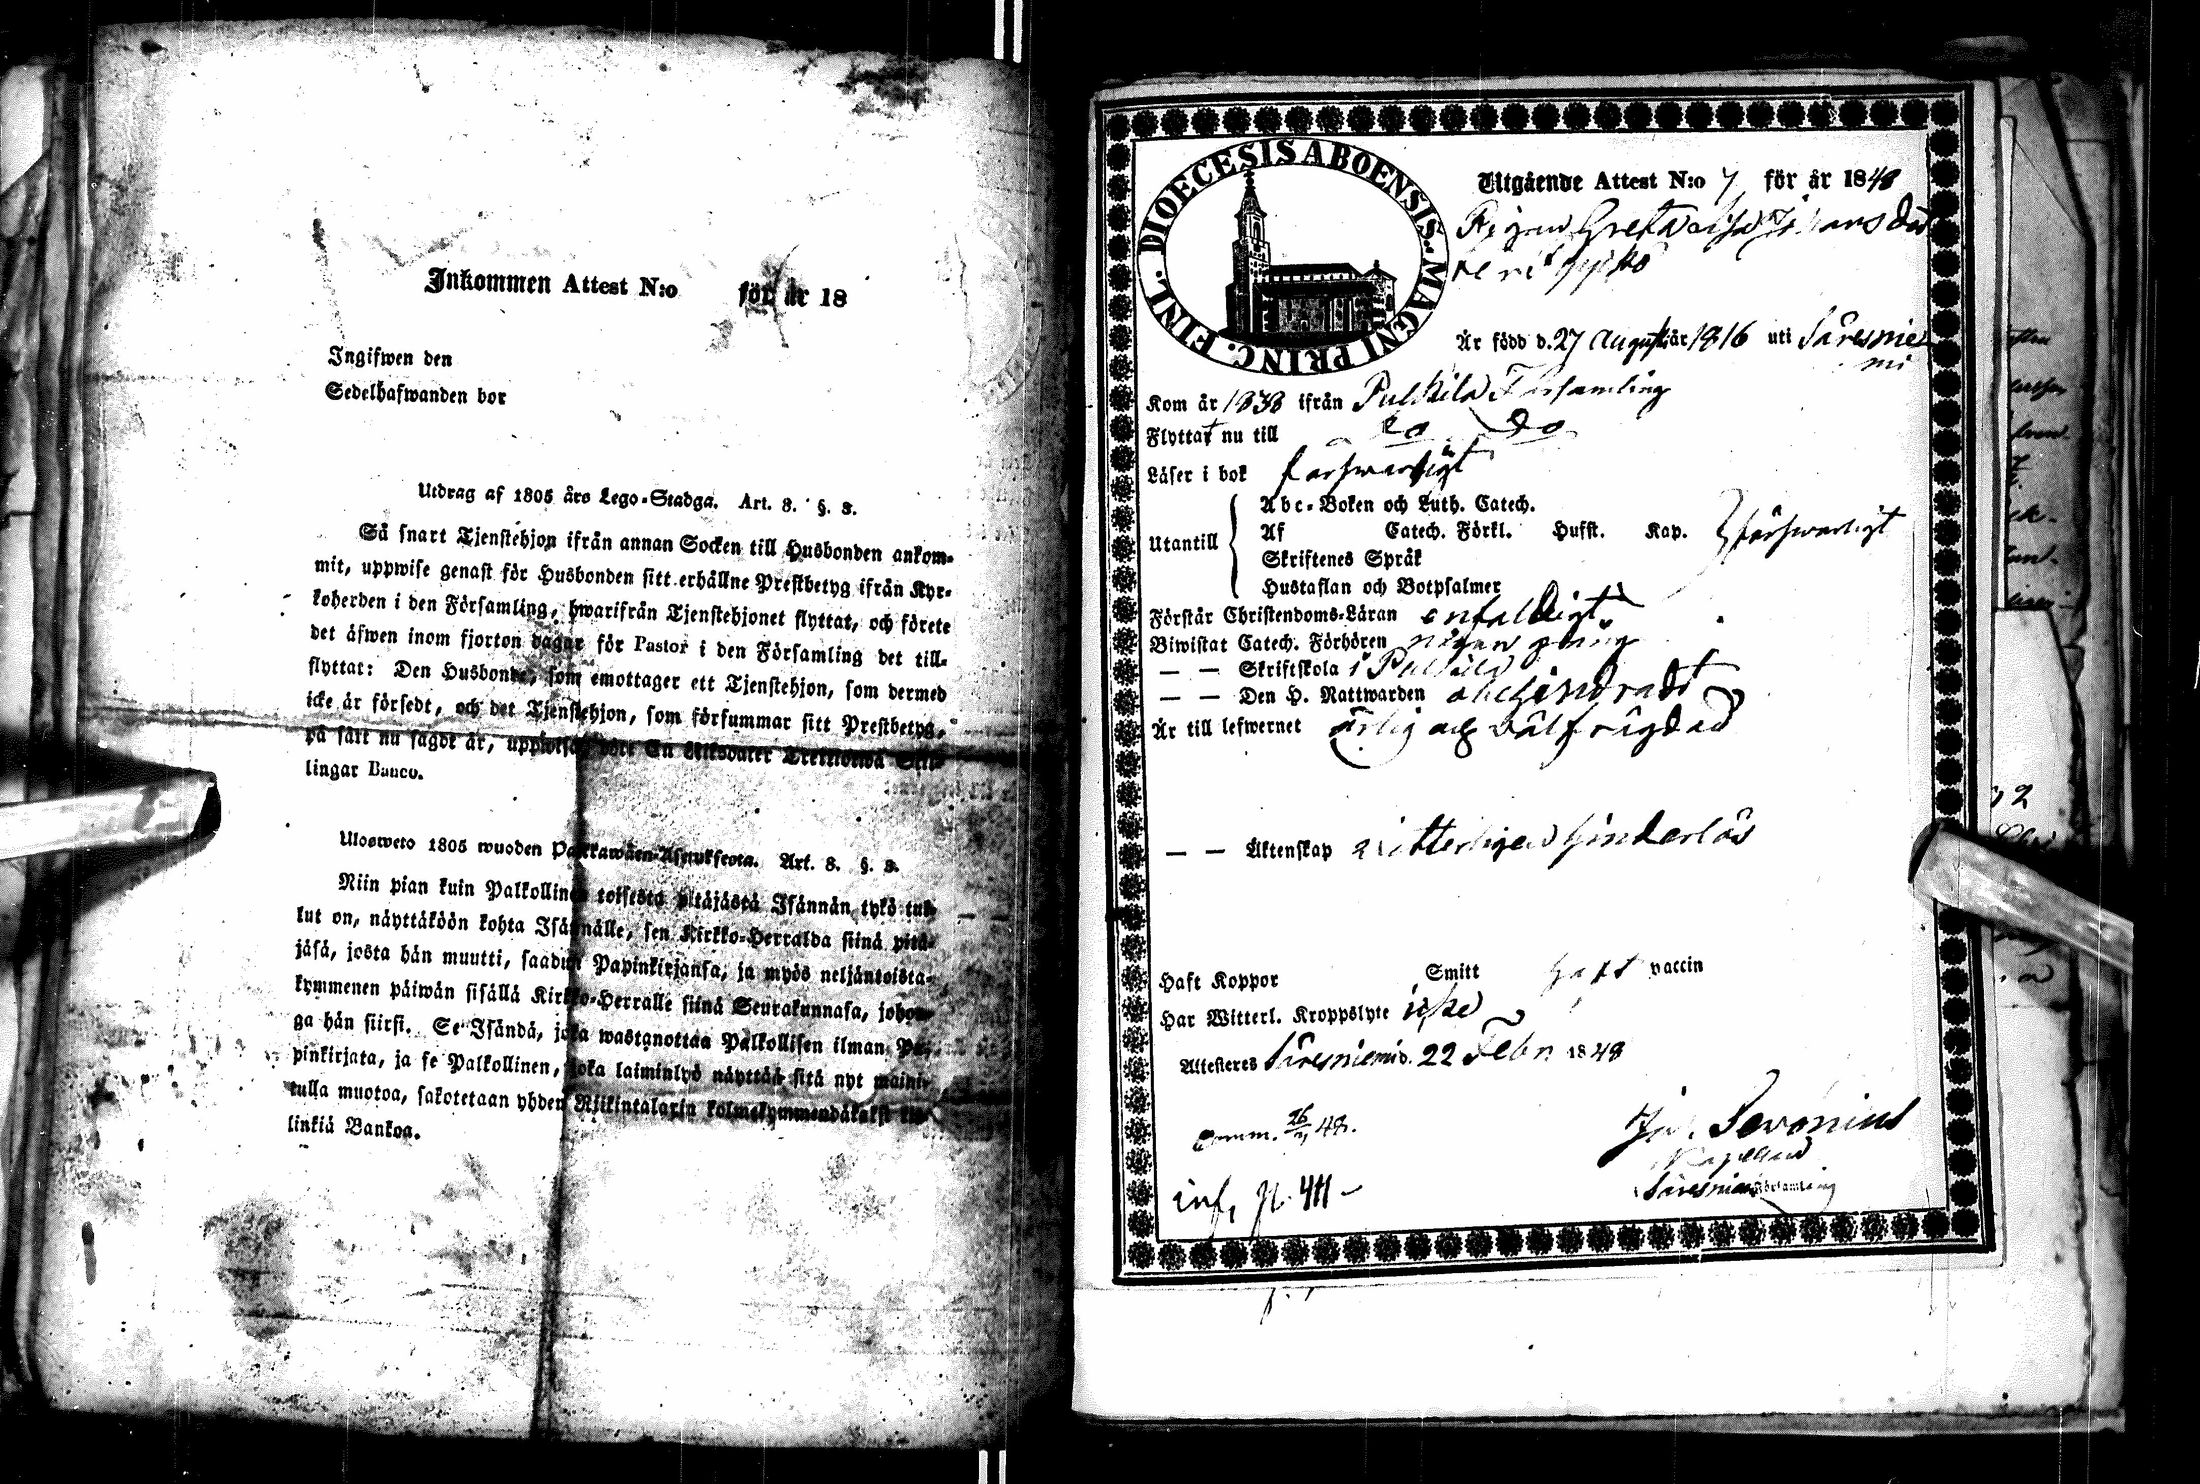 Inkommen Attest N:o för år 18
Ingifwen den
Sedelhafwanden bor
Utdrag af 1805 års Lego-Stadga. Art. 8. §. 3.
Så snart Tjenstehjon ifrån annan Socken till Husbonden ankom-
mit, uppwise genast för Husbonden sitt erhållne Prestbetyg ifrån Kyr-
koherden i den Församling, hwarifrån Tjenstehjonet flyttat, och förete
det äfwen inom fjorton dagar för Pastor i den Församling det till-
flyttat: Den Husbonde, som emottager ett Tjenstehjon, som dermed
icke är försedt, och det Tjenstehjon, som försummar sitt Prestbetyg,
på sätt nu sagdt är, uppwisa, böte En Riksdaler Trettiotwå Skil-
lingar Banco.
Ulosweto 1805 wuoden Palkkawäen-Asetuksesta. Art. 8. §. 3.
Niin pian kuin Palkollinen toisesta pitäjästä Isännän tykö tul-
lut on, näyttäköön kohta Isännälle, sen Kirkko-Herralda siinä pitä-
jäsä, josta hän muutti, saadun Papinkirjansa, ja myös neljäntoista-
kymmenen päiwän sisällä Kirkko-Herralle siinä Seurakunnasa, johon-
ga hän siirsi. Se Isändä, joka wastanottaa Palkollisen ilman Pa-
pinkirjata, ja se Palkollinen, joka laiminlyö näyttää sitä nyt maini-
tulla muotoa, sakotetaan yhden Riikintalarin kolmekymmendäkaksi kil-
linkiä Bankoa.
DIOECESIS ABOENSIS. MAGNI PRINC. FINL.
Utgående Attest N:o 7 för år 1848
Pigan Greta Lisa Johans dot
ter
Är född d. 27 Augusti år 1816 uti Säresnie
mi
Kom år 1838 ifrån Pulkila Församling
Flyttat nu till do do
Läser i bok förswarligt
Abc-Boken och Luth. Catech.
Utantill Af Catech. Förkl. Husst. Kap. förswarligt
Skriftenes Språk
Hustaflan och Botpsalmer
Förstår Christendoms-Läran enfaldigt
Biwistat Catech. Förhören någon gång
— — Skriftskola i Pulkila
— — Den H. Nattwarden obehindradt
Är till lefwernet ärlig och wälfrägdad
— — Äktenskap witterligen hinderlös
Haft Koppor Smitt haft vaccin
Har Witterl. Kroppslyte icke
Attesteres Säresniemi d. 22 Febr 1848
Joh. Sevonius
Kapellan
Säresniemi Församling
inf. p. 411